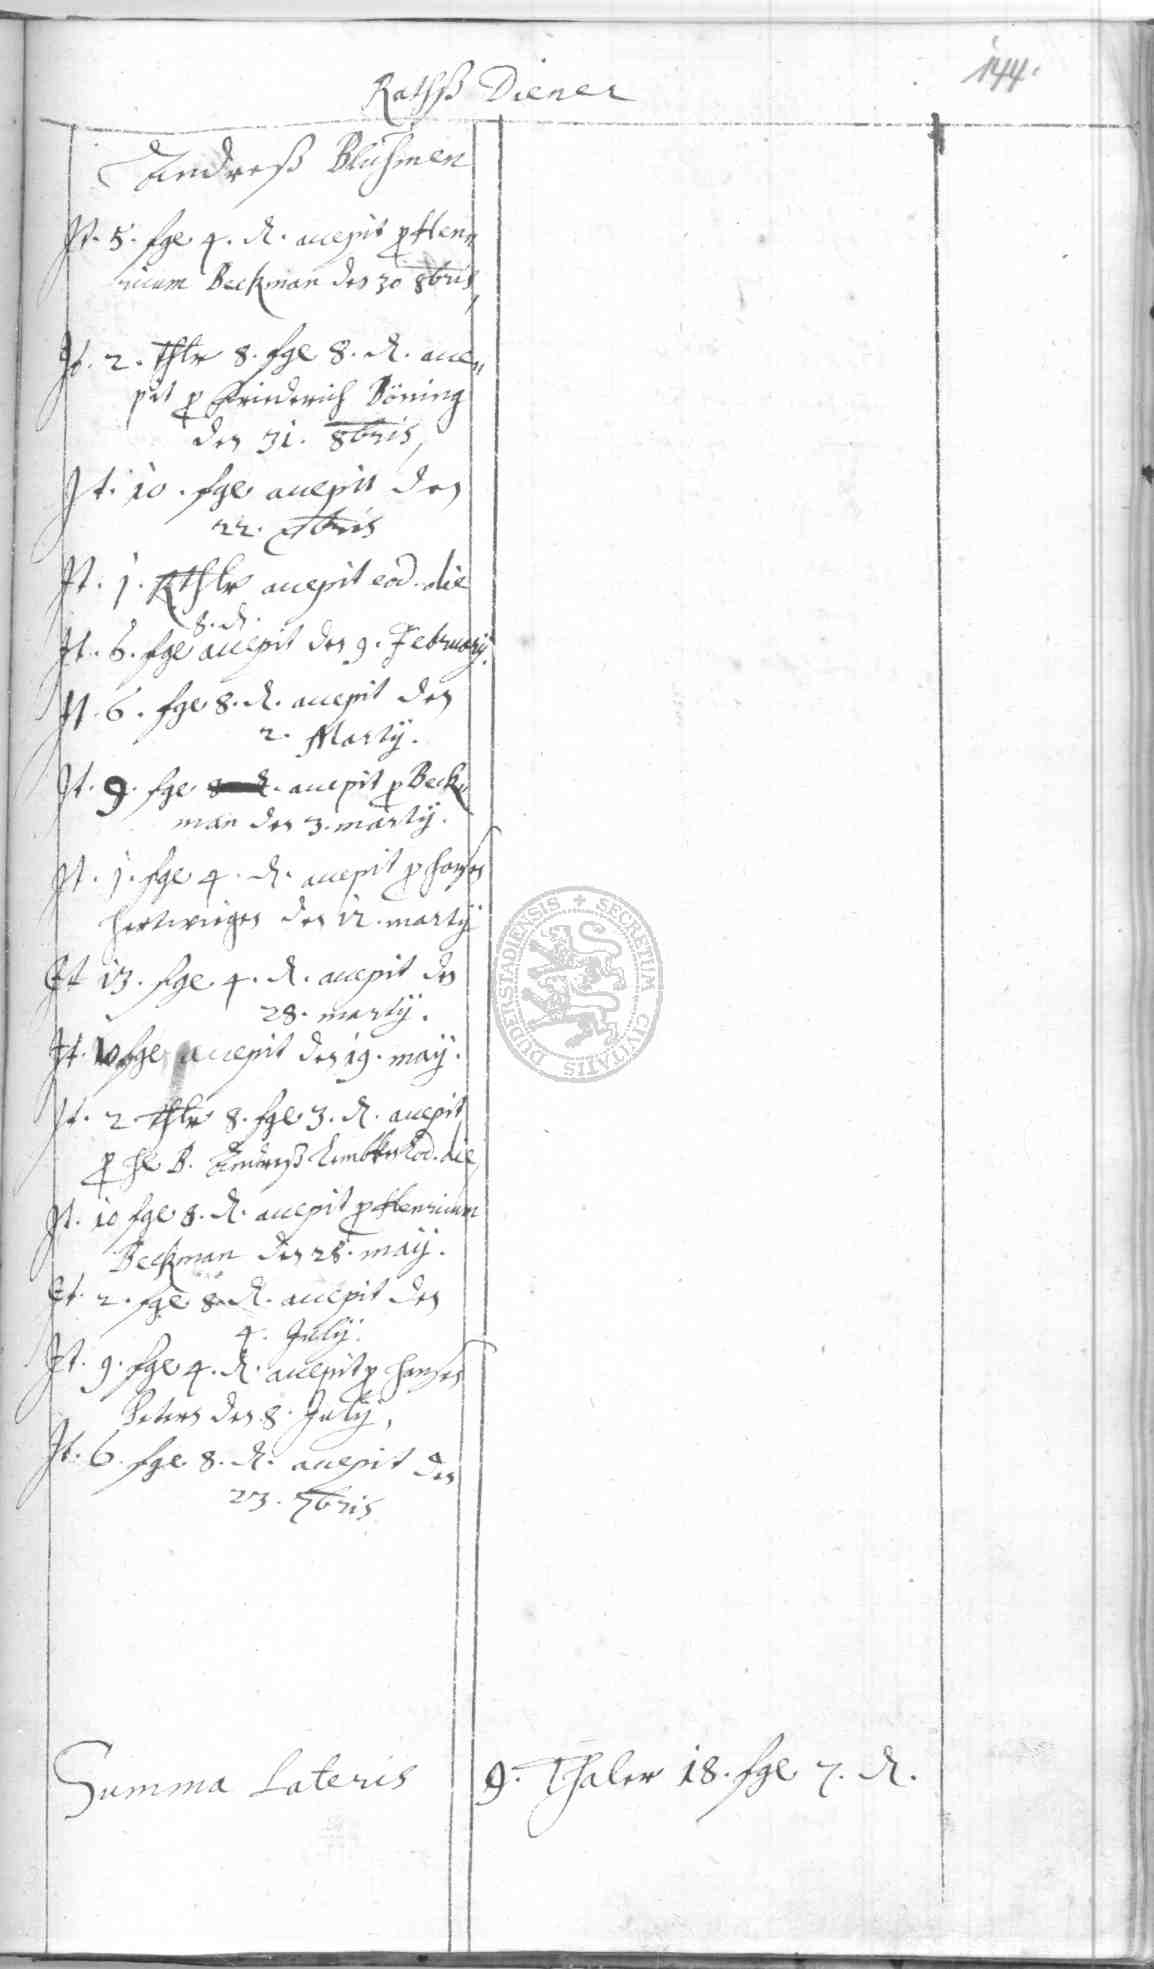 144.
Rathß Diener
Andreß Blühmen
It. 5. ßgl 4. d. accepit p Hen
ricum Beckman den 30 8bris,
It. 2. Thlr 8. ßgl 8. d. acce
pit p Friederich Böning
den 31. 8bris,
It. 10. ßgl accepit den
22. xbris
It. 1. Rthlr accepit eod. die
8. d.
It. 6. ßgl accepit den 9. February.
It. 6. ßgl 8. d. accepit den
2. Marty.
It. 9. ßgl 8 d. accepit p Beck
man den 3. marty.
It. 1. ßgl 4. d. accepit p Hanses
Hertwieges den 12. marty
It 13. ßgl 4. d. accepit den
28. marty.
It. 10 ßgl accepit den 19. may.
It. 2 Thlr 8. ßgl 3. d. accepit
p H B. Andreß eod. die
It. 10 ßgl 8. d. accepit p Henricum
Beckman den 28. may.
It. 2. ßgl 8 d. accepit den
4. July.
It. 9. ßgl 4. d. accepit p Hanses
Peters den 8. July,
It. 6. ßgl 8. d. accepit den
23. 7bris
Summa Lateris 9. Thaler 18. ßgl 7. d.
SECRETUM CIVITATIS DUDERSTADIENSIS